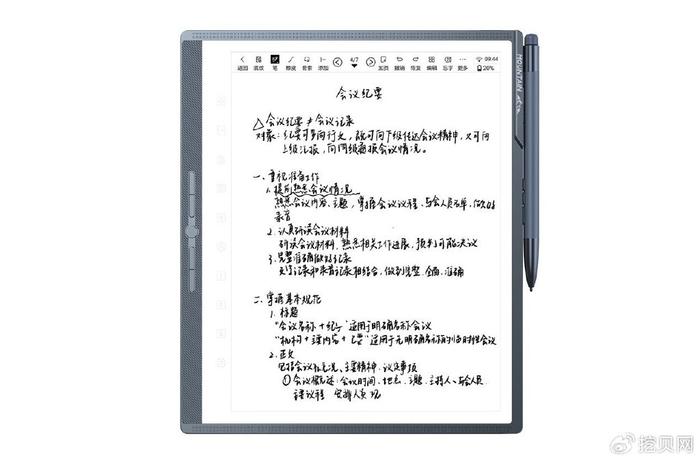 返回 笔 橡皮 套索 添加 4/7 加页 撤销 恢复 编辑 忘字 更多 09:44
20%
会议纪要
△会议纪要≠会议记录
对象：纪要可多向行文，既可向下级传达会议精神，又可向
上级汇报，向同级通报会议情况。
一、重视准备工作
1. 提前熟悉会议情况
熟悉会议内容、主题，掌握会议议程、与会人员名单，做好
录音
2. 认真研读会议材料
研读会议材料，熟悉相关工作进展，预判可能决议
3. 完整准确做好记录
文字记录和录音记录相结合，做到完整、全面、准确
二、掌握基本规范
1. 标题
“会议名称+纪要”适用于明确名称会议
“机构+主要内容+纪要”适用于无明确名称的临时性会议
2. 正文
包括会议概况、主要精神、议定事项
①会议概述：会议时间、地点、主题、主持人、与会人员、
主要议程
MOUNTAIN
@挖贝网